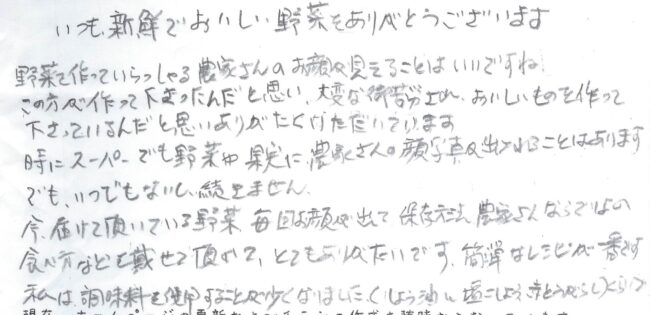 いつも新鮮でおいしい野菜をありがとうございます
野菜を作っていらっしゃる農家さんのお顔が見えることはいいですね
この方が作って下さったんだと思い、大変な御苦労され、おいしいものを作って
下さっているんだと思いありがたくいただいています
時にスーパーでも野菜や果実に農家さんの顔写真が出ていることはあります
でも、いつでもないし続きません
今、届けて頂いている野菜 毎回お顔が出して 保存方法 農家さんならではの
食べ方などを載せて頂いて、とてもありがたいです。簡単なレシピが一番です
私は、調味料を使用することが少なくなりました（しょう油、塩こしょう、さとう